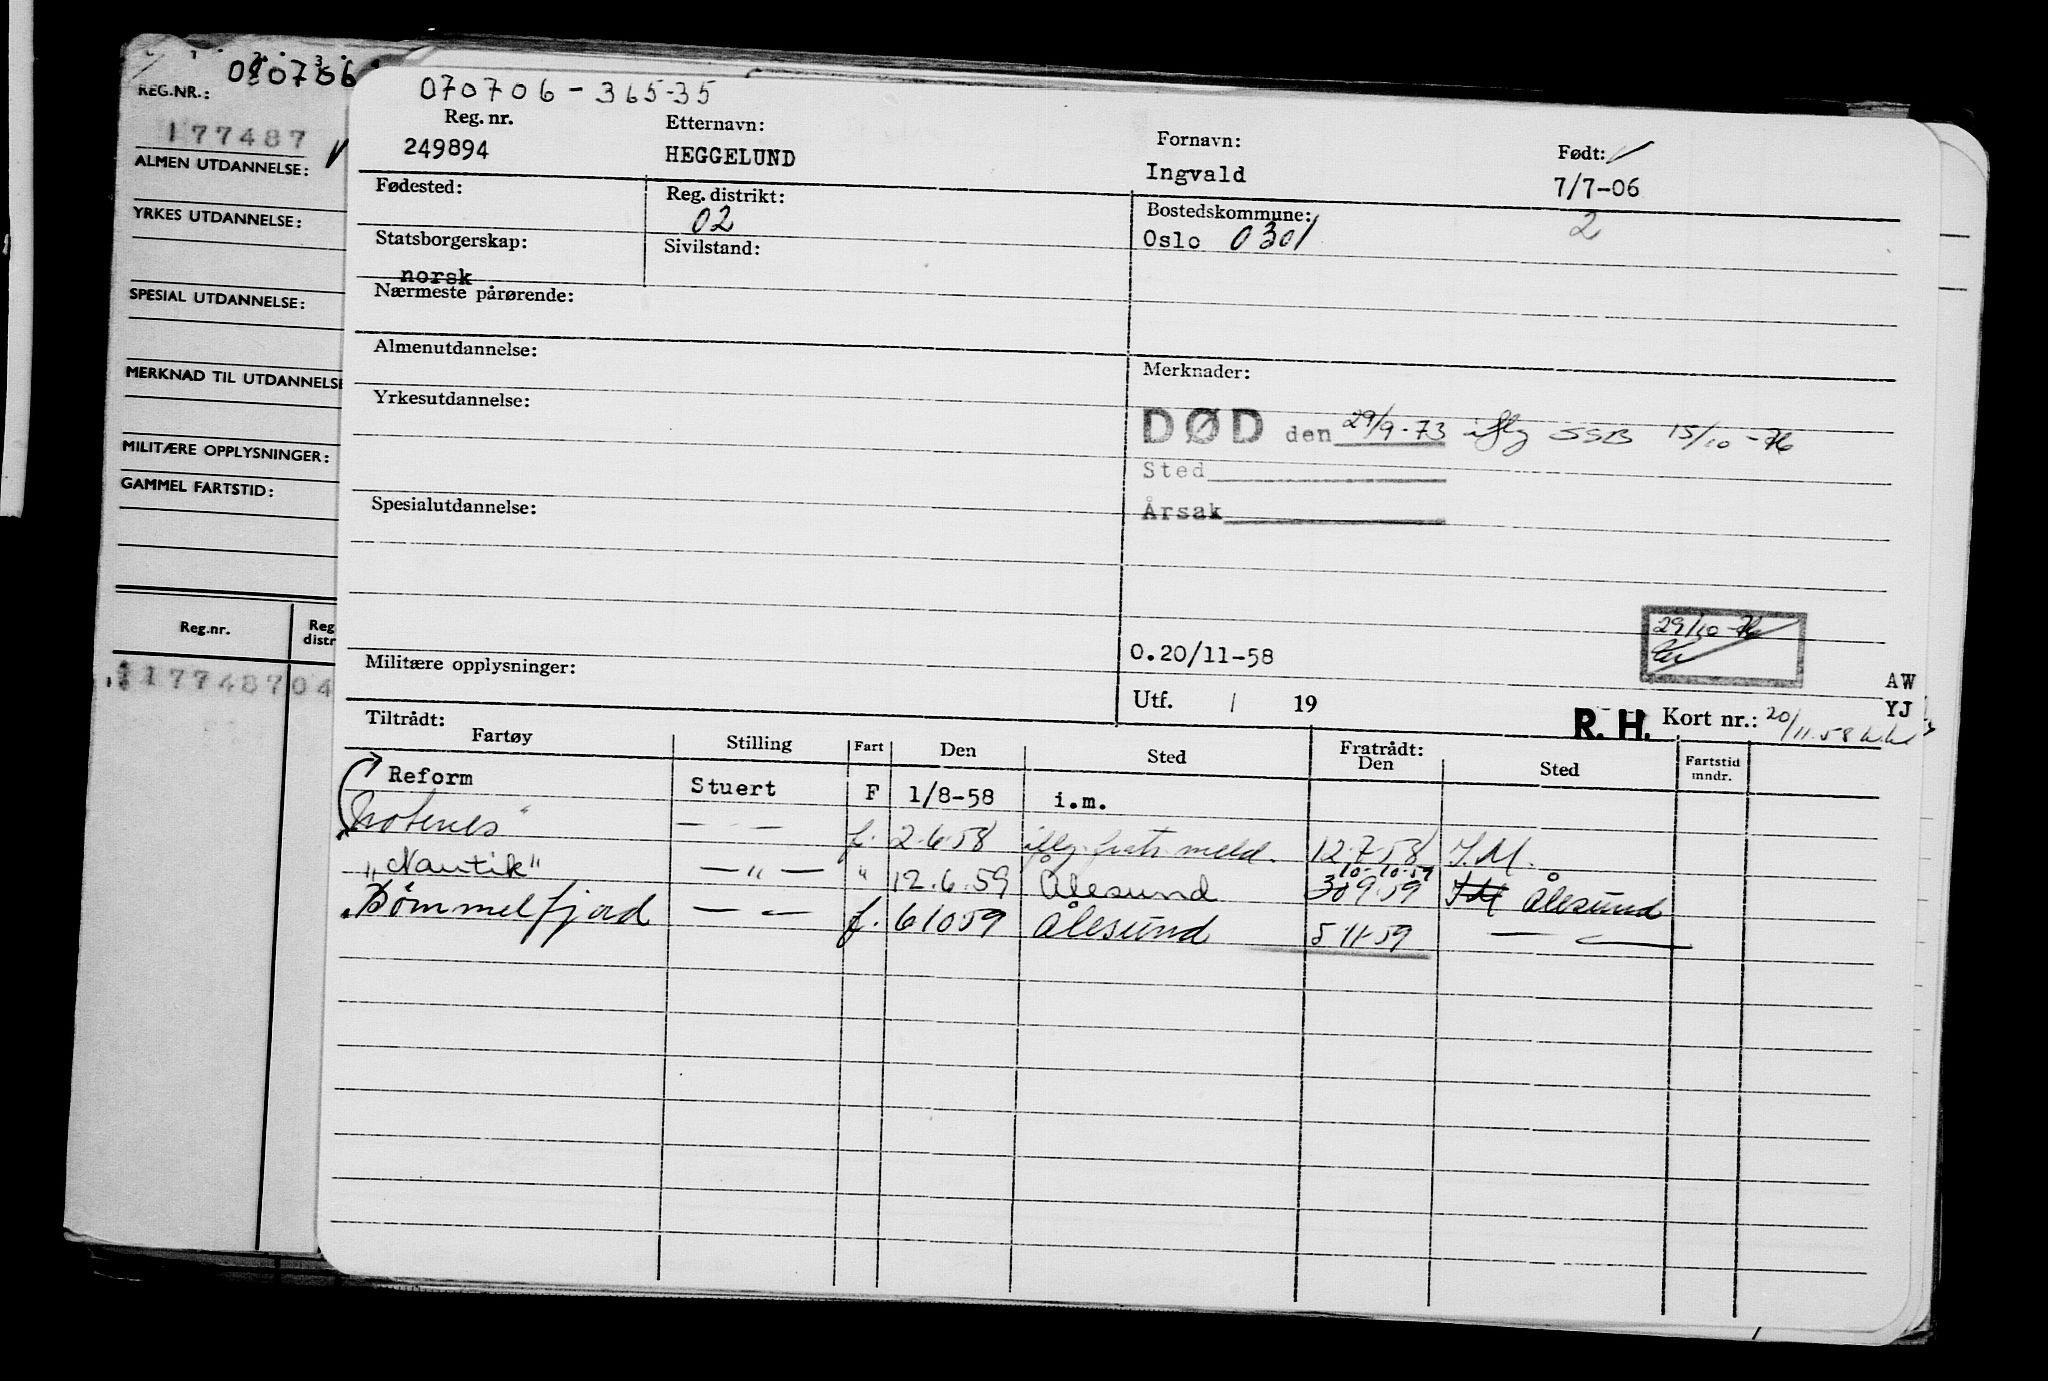 070706
REG.NR.:
177487
ALMEN UTDANNELSE:
YRKES UTDANNELSE:
SPESIAL UTDANNELSE:
MERKNAD TIL UTDANNELSE
MILITÆRE OPPLYSNINGER:
GAMMEL FARTSTID:
Reg.nr. Reg distr
177487 04
070706-365-35
Reg. nr. Etternavn: Fornavn: Født:
249894 HEGGELUND Ingvald 7/7-06
Fødested: Reg. distrikt: Bostedskommune: 2
02 Oslo 0301
Statsborgerskap: Sivilstand:
norsk
Nærmeste pårørende:
Almenutdannelse: Merknader:
Yrkesutdannelse:
DØD den 29/9-73 iflg SSB 15/10-76
Sted
Spesialutdannelse: Årsak
29/10-76
0.20/11-58
Militære opplysninger: AW
Utf. / 19 YJ
R. H. Kort nr.: 20/11.58
Tiltrådt: Fratrådt:
Fartøy Stilling Fart Den Sted Den Sted Fartstid mndr.
Reform Stuert F 1/8-58 i.m.
— " — f. 2.6.58 iflg. fratr. meld. 12.7.58 I.M.
10-10-59
"Nautik" — " — " 12.6.59 Ålesund 30 9 59 I.M Ålesund
Bømmelfjord — " — f. 6 10 59 Ålesund 5 11-59 — " —